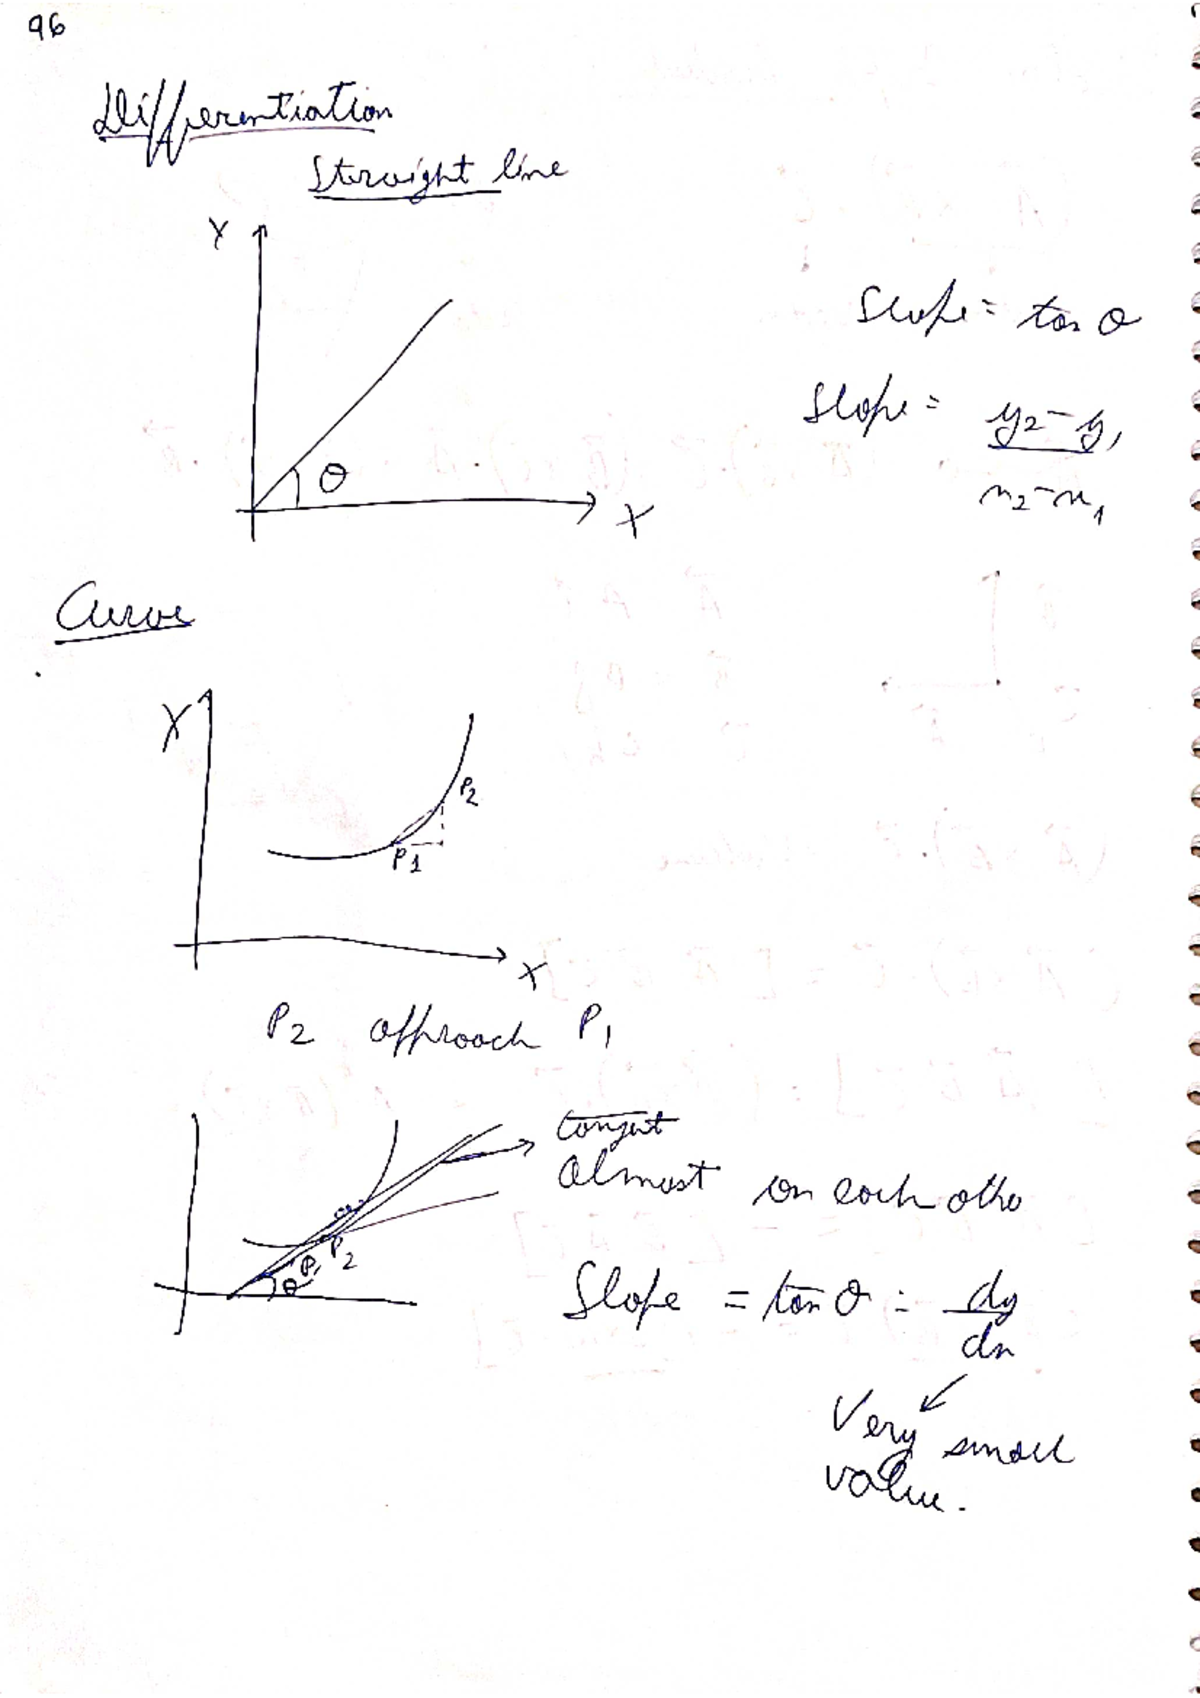 96
Differentiation
Straight line
Y
Slope = tan θ
Slope = y2 - y1
x2 - x1
θ
X
Curve
Y
P2
P1
X
P2 approach P1
tangent
almost on each othe
P1
P2
θ
Slope = tan θ = dy
dx
Very small
value.